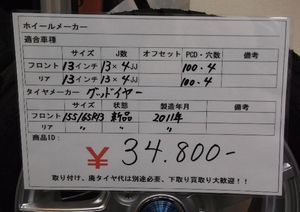 ホイールメーカー
適合車種
サイズ J数 オフセット PCD・穴数 備考
フロント 13インチ 13×4JJ 100・4
リア 13インチ 13×4JJ 100・4
タイヤメーカー グッドイヤー
サイズ 状態 製造年月 備考
フロント 155/65R13 新品 2011年
リア 〃 〃 〃
商品ID:
¥34.800-
取り付け、廃タイヤ代は別途必要、下取り買取り大歓迎!!